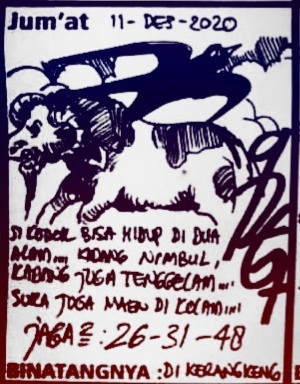 Jum'at 11-DES-2020
SI KODOK BISA HIDUP DI DUA
ALAM.... KADANG NIMBUL,
KADANG JUGA TENGGELAM....
SUKA JUGA MAEN DI KOLAM!!!
JAGA2 : 26-31-48
BINATANGNYA : DI KERANGKENG